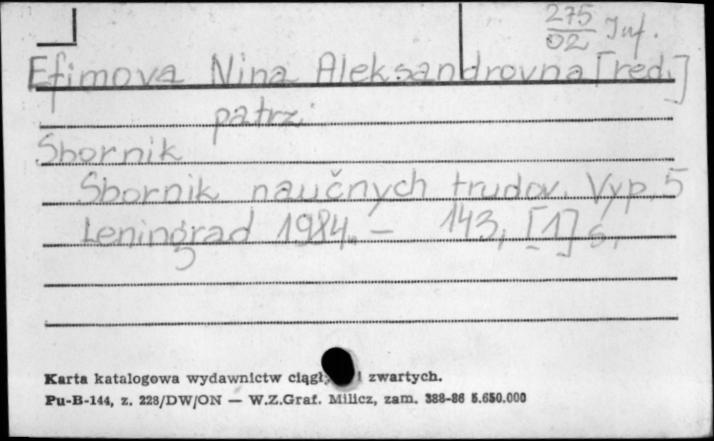 275
02 Inf.
Efimova Nina Aleksandrovna [red.]
patrz:
Sbornik
Sbornik naučnych trudov. Vyp. 5
Leningrad 1984. – 143, [1] s.
Karta katalogowa wydawnictw zwartych.
Pu-B-144, z. 228/DW/ON — W.Z.Graf. Milicz, zam. 388-86 5.650.000